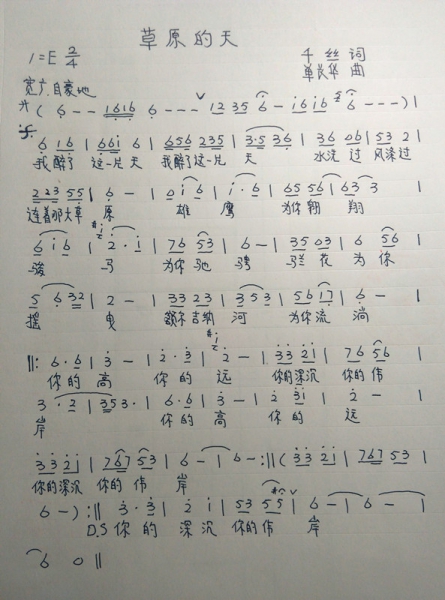 草原的天
1=E 2/4
千丝 词
单良华 曲
宽广自豪地
サ ( 6 - - 1616 6 - - - ∨ 12 35 6 - 1616 6 - - - ) |
6 16 | 661 6 | 656 235 | 3·5 36 | 36 06 | 53 2 |
我醉了 这一片天 我醉了这一片 天 水流过 风深过
223 55 | 6 - | 016 | 1·6 | 65 56 | 63 3 |
连着那大草 原 雄 鹰 为你翱 翔
616 | 2·1 | 76 53 | 6 - | 35 03 | 6 56 |
骏 马 为你驰 骋 兰花 为你
5 632 | 2 - | 33 23 | 353 | 56 17 | 6 - |
摇 曳 额尔吉纳 河 为你流 淌
‖: 6·6 | 3 - | 2·3 | 2 - | 33 21 | 76 56 |
你的 高 你的 远 你的深沉 你的伟
3·2 | 353· | 6·6 | 3 - | 2 31 | 2 - |
岸 你的 高 你的 远
33 21 | 767 53 | 6 - | 6 - :‖ ( 33 21 | 767 53 |
你的深沉 你的伟 岸
6 - ) :‖ 3·3 | 2 1 | 53 55 ∨ | 6 - | 6 - |
D.S 你的 深沉 你的伟 岸
6 0 ‖